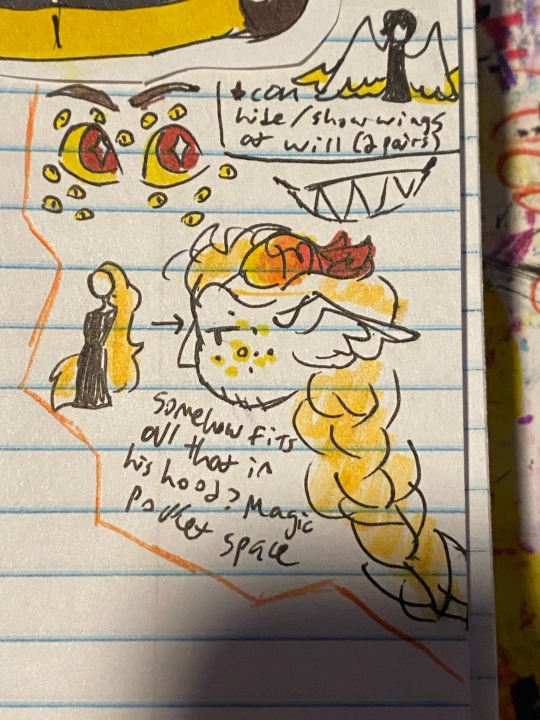 * can
hide/show wings
at will (2 pairs)
Somehow fits
all that in
his hood? Magic
pocket
space